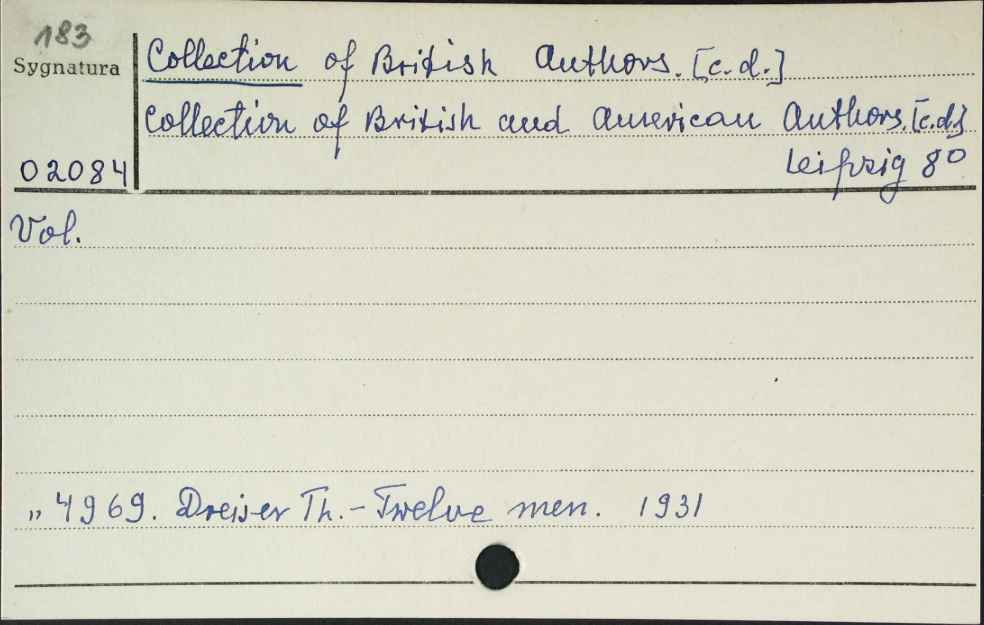 183
Sygnatura
Collection of British Authors. [c.d.]
Collection of British and American Authors. [c.d.]
02084
Leipzig 8º
Vol.
„ 4969. Dreiser Th. - Twelve men. 1931